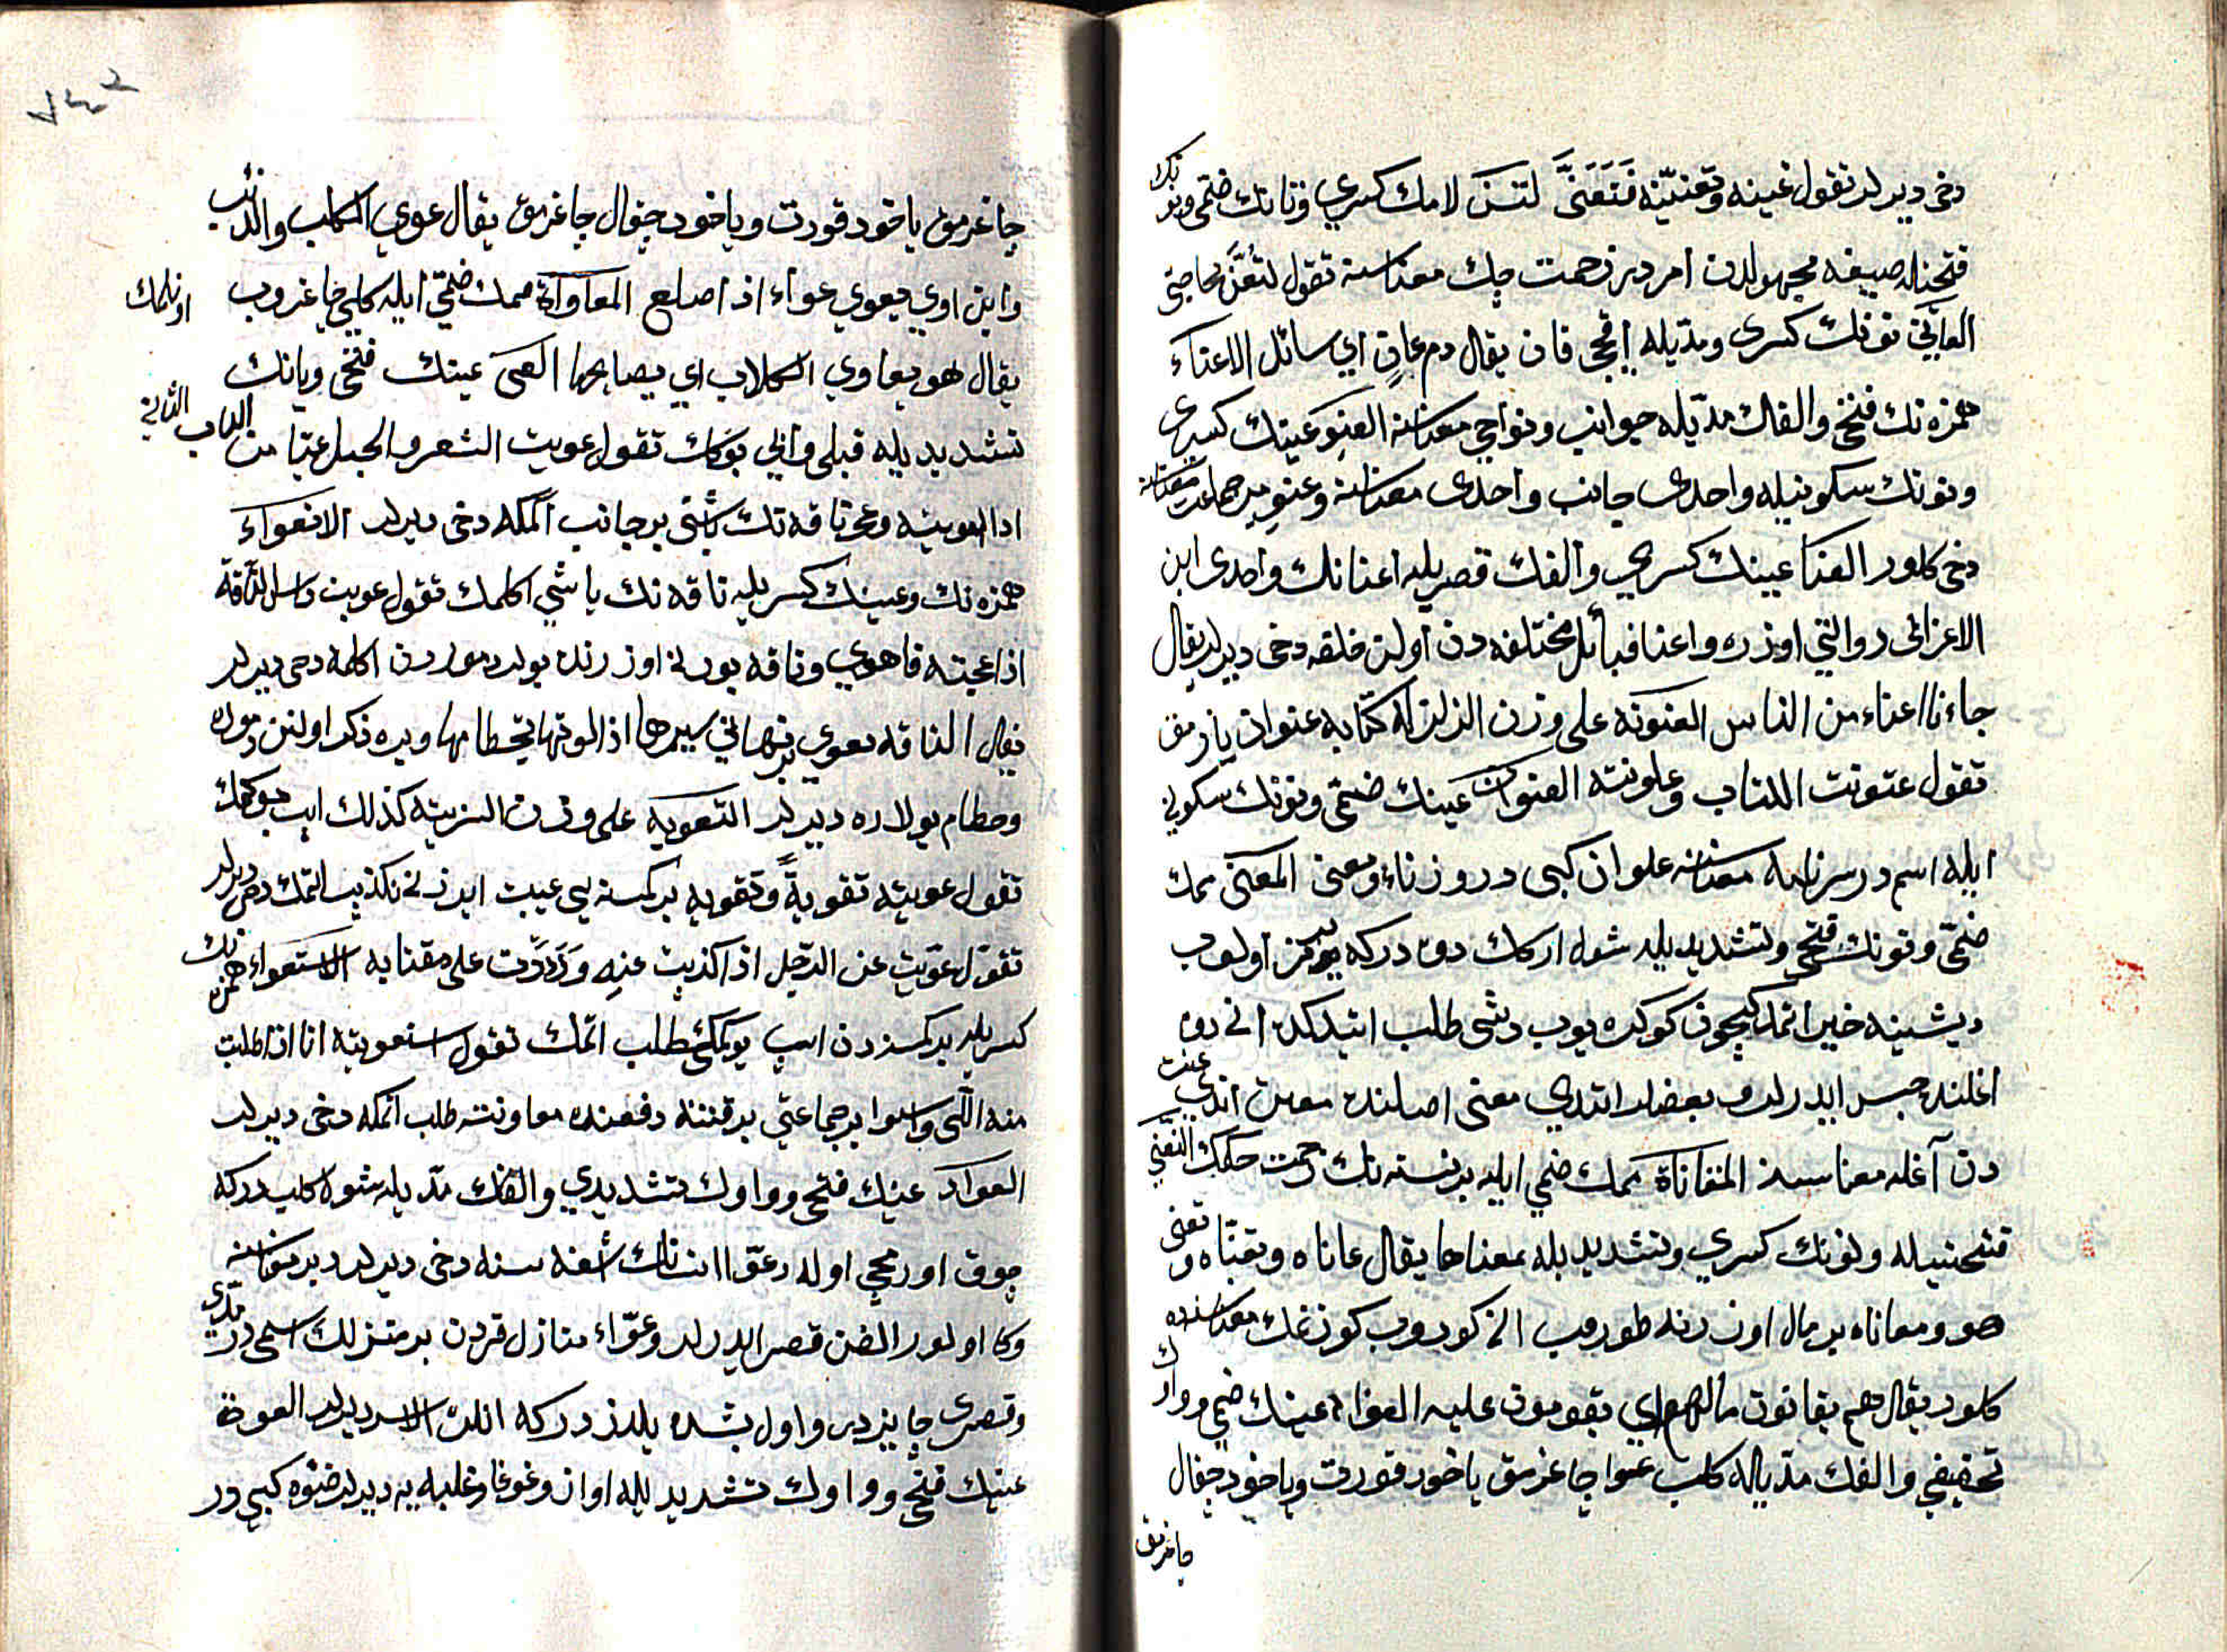 دخی دیرلر تقول عنیته وتعنیته فتعنی لتن لامك كسری وتانك ضمی ونونك
فتحیله صیغه مجهولدن امردر زحمت چك معناسنه تقول لتعن بحاجتی
العانی نونك كسری ومدیله اقیجی قان یقال دم عان ای سائل الاعناء
همزه نك فتحی والفك مدیله جوانب ونواحی معناسنه العنو عینك كسری
ونونك سكونیله واحدی جانب واحدی معناسنه وعنو بر جماعت معناسنه
دخی كلور العنا عینك كسری والفك قصریله اعنانك واحدی ابن
الاعرابی روایتی اوزره واعنا قبائل مختلفه دن اولن خلقه دخی دیرلر یقال
جاءنا اعناء من الناس العنونة علی وزن الزلزلة كتابه عنوان یازمق
تقول عنونت الكتاب وعلونته العنوان عینك ضمی ونونك سكونی
ایله اسمدر سرنامه معناسنه علوان كبی در وزناء ومعنی المعنی میمك
ضمی ونونك فتحی وتشدیدیله شول اركك دوه دركه
دیشینه خیر اتمز
اغلنده حبس ایدرلر بعضلر ایتدی معنی اصلنده معنن ایدی عنت
دن آغله معناسنه المعاناة میمك ضمی ایله بر نسنه نك زحمت چكمك التعنی
فتحتیله ونونك كسری وتشدیدیله بمعناها یقال عاناه وتعناه وتعنی
هو ومعاناه بر مال اوزرنه طوروب انی كوروب كوزتمك معناسنده
كلور یقال هم یعانون مالهم ای یقومون علیه العواء عینك ضمی وواوك
تخفیفی والفك مدیاله كلب عوا چاغرمق یاخود قورت ویاخود چقال
چاغرمق
٧٤٢
چاغرمق یاخود قورت ویاخود چقال چاغرمق یقال عوی الكلب والذئب
وابن اوی یعوی عواء اذا صاح المعاواة میمك ضمی ایله كلبی چاغروب اونلمك
یقال هو یعاوی الكلاب ای یصایحها العی عینك فتحی ویانك
تشدیدیله قیلی وایپی بوكمك تقول عویت الشعر والحبل عیا من الباب الثانی
اذا لویته وعی ناقه نك باشنی بر جانب اكمكه دخی دیرلر الانعواء
همزه نك وعینك كسریله ناقه نك باشی اكلمك تقول عویت راس الناقة
اذا عجته فانعوی وناقه بورنی اوزرنده بولر دموردن اكلمه دخی دیرلر
یقال الناقة تعوی برتها فی سیرها اذا لوتها بخطامها وبره ذكر اولنن دموره
وخطام یولاره دیرلر التعویة علی وزن التربیة كذلك ایپ بوكمك
تقول عویته تعویة وتعویه بر كمسنه یی عیبت ایدنی تكذیب اتمك دخی دیرلر
تقول عویت عن الرجل اذا كذبت عنه ورددت علی مغتابه الاستعواء همزه نك
كسریله بر كمسنه دن ایپ بوكمكی طلب اتمك تقول استعویته انا اذا طلبت
منه اللی واستعوا بر جماعتی بر فتنه دفعنده معاونته طلب اتمكه دخی دیرلر
العواء عینك فتحی وواوك تشدیدی والفك مدیله شول كلب دركه
چوق اورمجی اوله وعوا انسانك
وكا اولور الفن قصر ایدرلر وعواء منازل قمردن بر منزلك اسمی در مدی
وقصری جایزدر واول بشده یلدز دركه انلره الاسد دیرلر العوة
عینك فتحی وواوك تشدیدیله اواز وغوغا وغلبه یه دیرلر ضوه كبی در